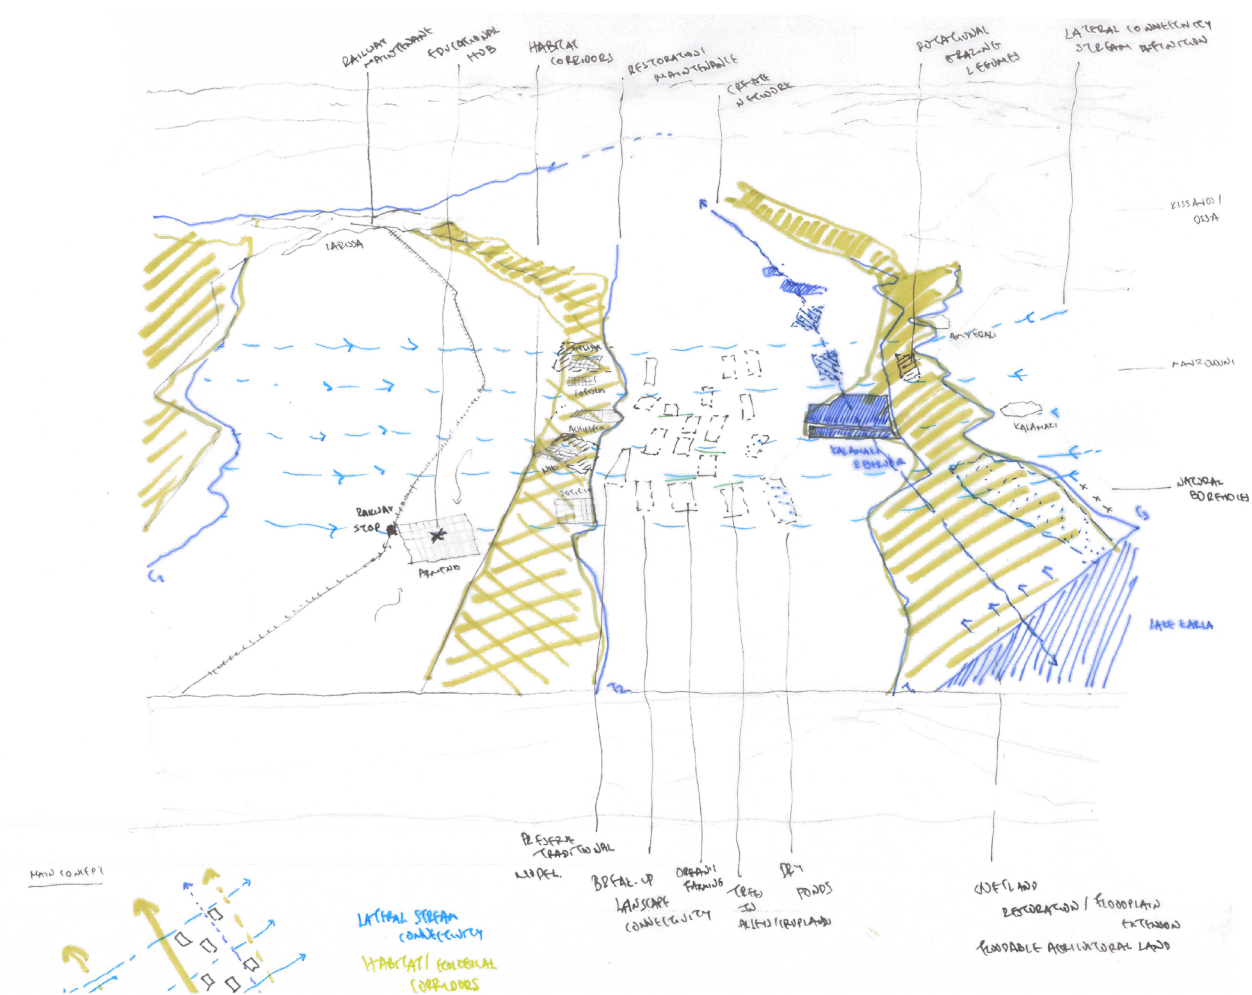 RAILWAY
MAINTENANCE
EDUCATIONAL
HUB
HABITAT
CORRIDORS
RESTORATION/
MAINTENANCE
CREATE
NETWORK
ROTATIONAL
GRAZING
LEGUMES
LATERAL CONNECTIVITY
STREAM DEFINITION
KISSAVOS/
OSSA
LARISSA
AMYGDALI
MAVROVOUNI
KALAMAKI
KALAMAKI
RESERVOIR
NATURAL
BOREHOLES
NIKI
SOTIRIO
RAILWAY
STOP
ARMENIO
LAKE KARLA
T2
PRESERVE
TRADITIONAL
MODEL.
BREAK-UP
LANSCAPE
CONNECTIVITY
ORGANIC
FARMING
TREES
IN
ALLEY/CROPLAND
DRY
PONDS
WETLAND
RESTORATION/FLOODPLAIN
EXTENSION
FLOODABLE AGRICULTURAL LAND
MAIN CONCEPT
LATERAL STREAM
CONNECTIVITY
HABITAT/ECOLOGICAL
CORRIDORS